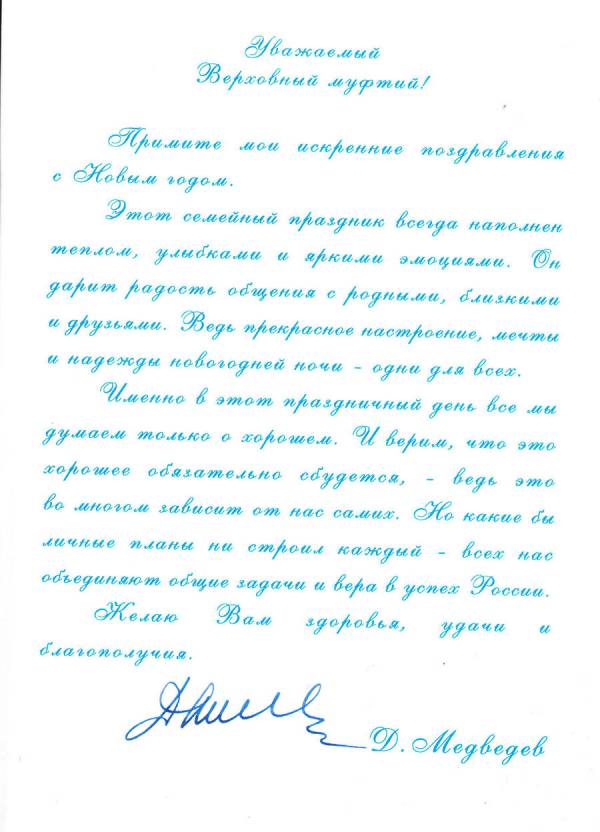 Уважаемый
Верховный муфтий!
Примите мои искренние поздравления
с Новым годом.
Этот семейный праздник всегда наполнен
теплом, улыбками и яркими эмоциями. Он
дарит радость общения с родными, близкими
и друзьями. Ведь прекрасное настроение, мечты
и надежды новогодней ночи - одни для всех.
Именно в этот праздничный день все мы
думаем только о хорошем. И верим, что это
хорошее обязательно сбудется, - ведь это
во многом зависит от нас самих. Но какие бы
личные планы ни строил каждый - всех нас
объединяют общие задачи и вера в успех России.
Желаю Вам здоровья, удачи и
благополучия.
Д. Медведев